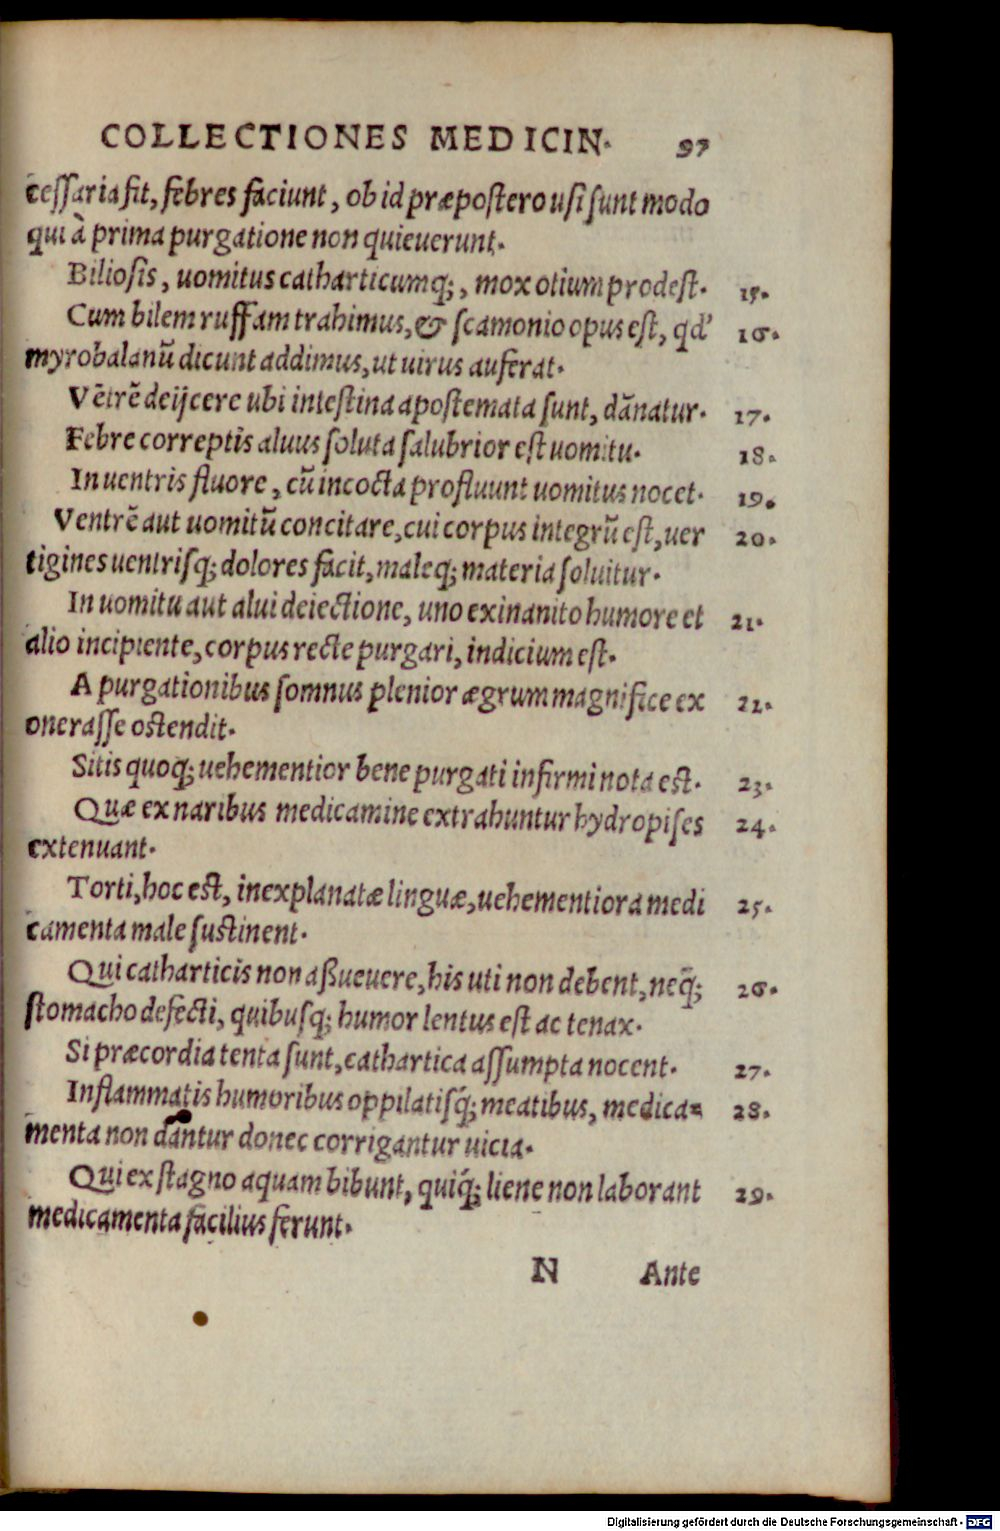 COLLECTIONES MEDICIN. 97
cessaria sit, febres faciunt, ob id præpostero usi sunt modo
qui à prima purgatione non quieuerunt.
Biliosis, uomitus catharticumq;, mox otium prodest. 15.
Cum bilem ruffam trahimus, & scamonio opus est, qd' 16.
myrobalanū dicunt addimus, ut uirus auferat.
Vētrē deijcere ubi intestina apostemata sunt, dānatur. 17.
Febre correptis aluus soluta salubrior est uomitu. 18.
In uentris fluore, cū incocta profluunt uomitus nocet. 19.
Ventrē aut uomitū concitare, cui corpus integrū est, uer 20.
tigines uentrisq; dolores facit, maleq; materia soluitur.
In uomitu aut alui deiectione, uno exinanito humore et 21.
alio incipiente, corpus recte purgari, indicium est.
A purgationibus somnus plenior ægrum magnifice ex 21.
onerasse ostendit.
Sitis quoq; uehementior bene purgati infirmi nota est. 23.
Quæ ex naribus medicamine extrahuntur hydropises 24.
extenuant.
Torti, hoc est, inexplanatæ linguæ, uehementiora medi 25.
camenta male sustinent.
Qui catharticis non aßueuere, his uti non debent, neq; 26.
stomacho defecti, quibusq; humor lentus est ac tenax.
Si præcordia tenta sunt, cathartica assumpta nocent. 27.
Inflammatis humoribus oppilatisq́; meatibus, medica= 28.
menta non dantur donec corrigantur uicia.
Qui ex stagno aquam bibunt, quiq́; liene non laborant 29.
medicamenta facilius ferunt.
N Ante
Digitalisierung gefördert durch die Deutsche Forschungsgemeinschaft - DFG